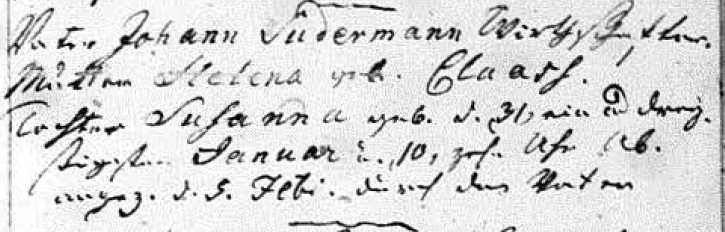 Vater Johann Südermann Wirthschafter.
Mutter Helena geb. Claass.
Tochter Susanna geb. d. 31, ein u drey-
sigsten Januar u. 10, zehn Uhr Ab.
angez. d. 5. Febr. durch den Vater